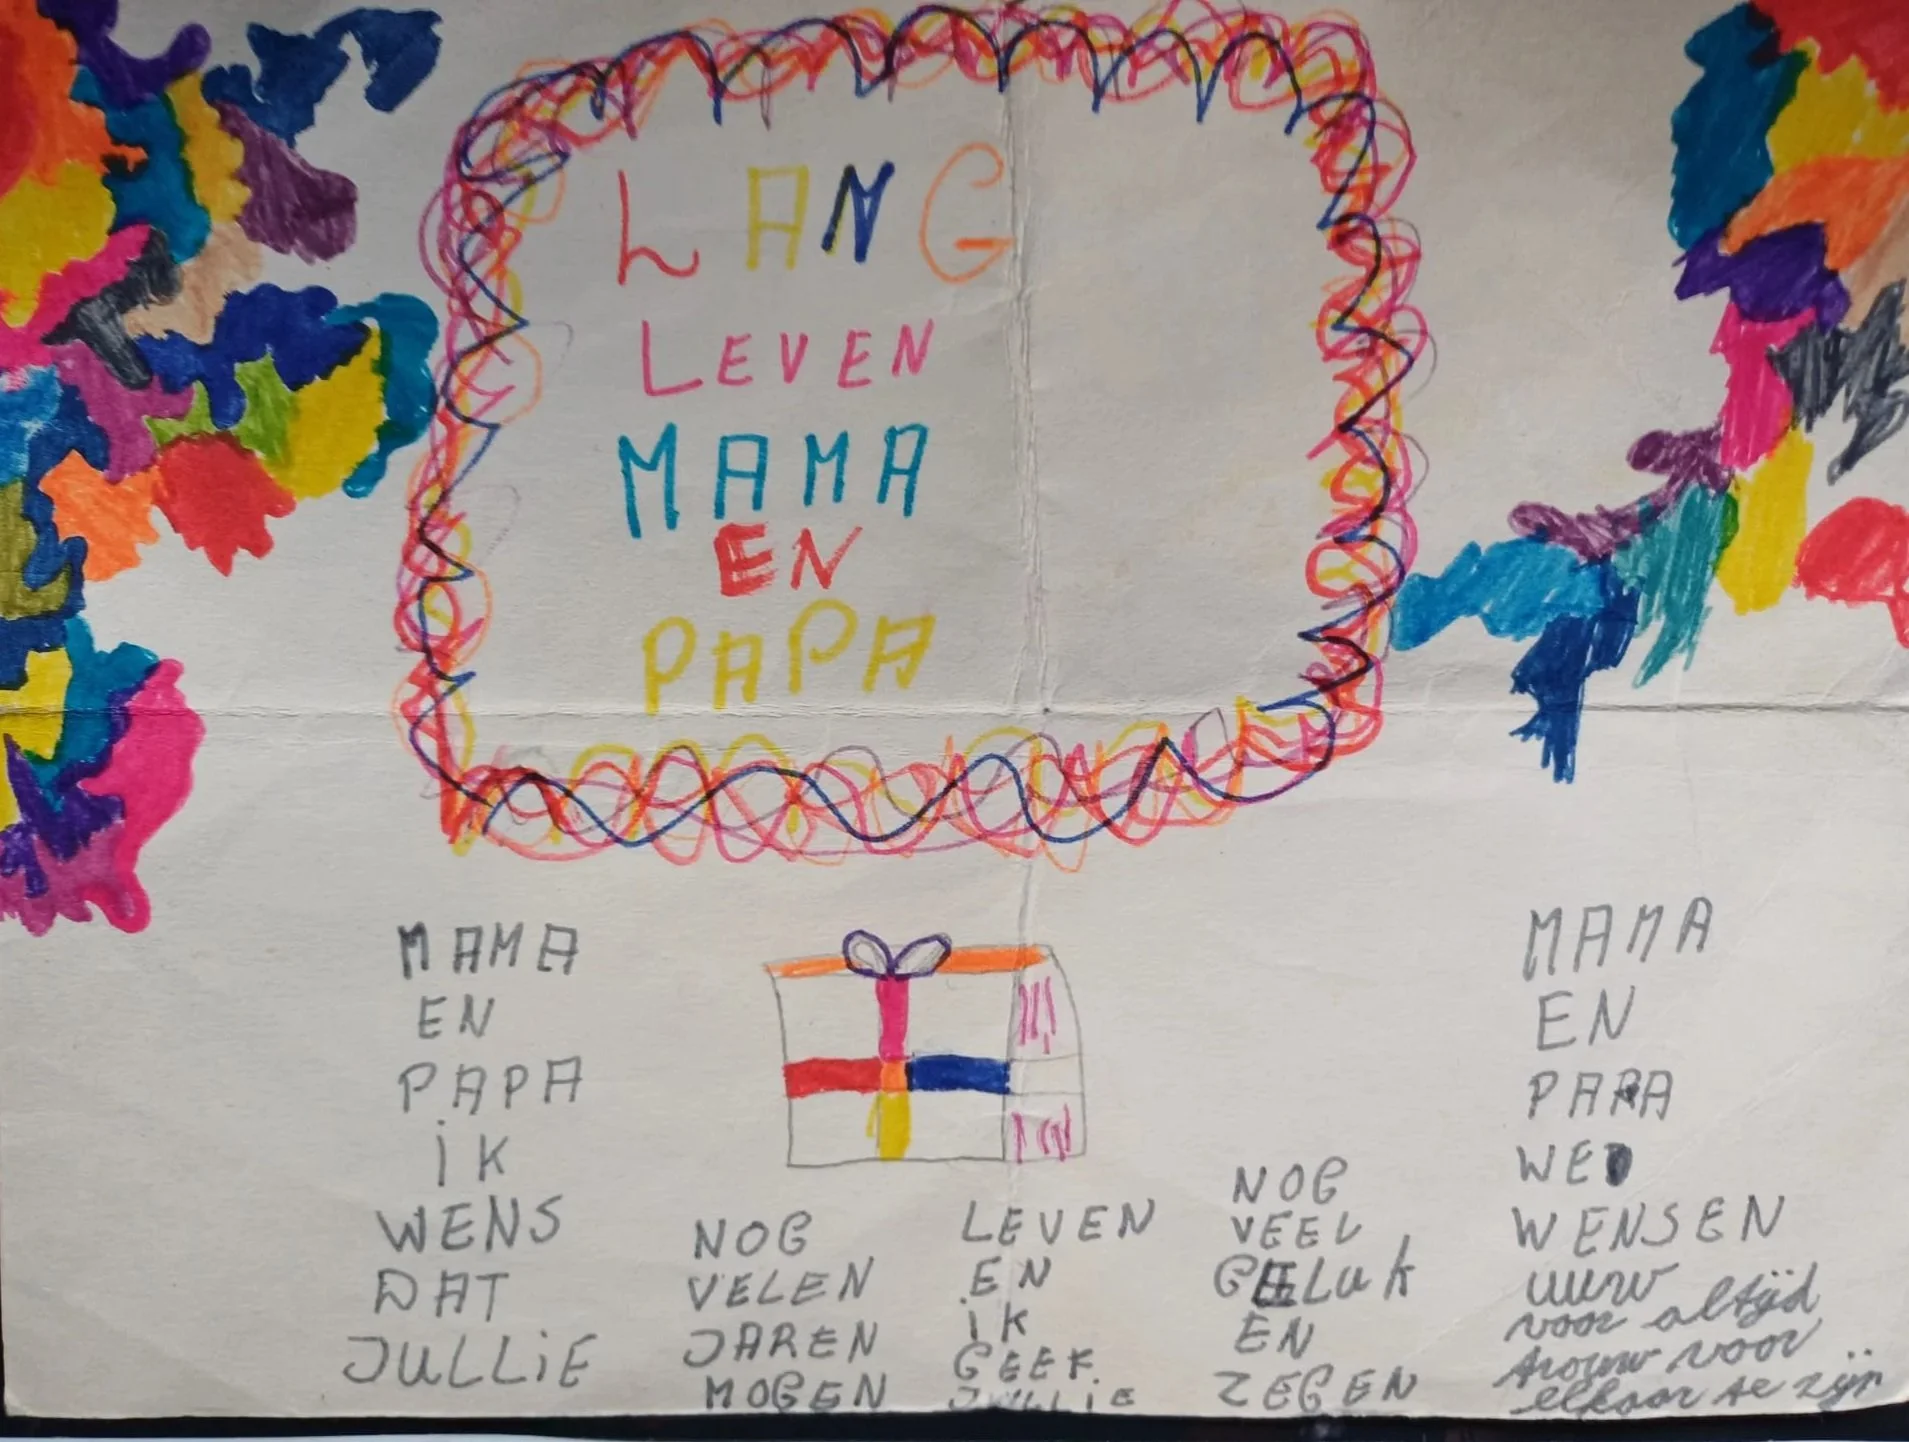 LANG
LEVEN
MAMA
EN
PAPA
MAMA
EN
PAPA
iK
WENS
DAT
JULLiE
NOG
VELEN
JAREN
MOGEN
LEVEN
EN
iK
GEEF
JULLiE
NOG
VEEL
GELuk
EN
ZEGEN
MAMA
EN
PAPA
WE
WENSEN
uuw
voor altijd
trouw voor
elkaar te zijn